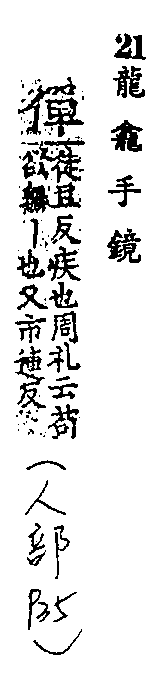 21龍龕手鏡
僤
徒旦反疾也周礼云苟
欲無丨也又市連反
(人部P35)